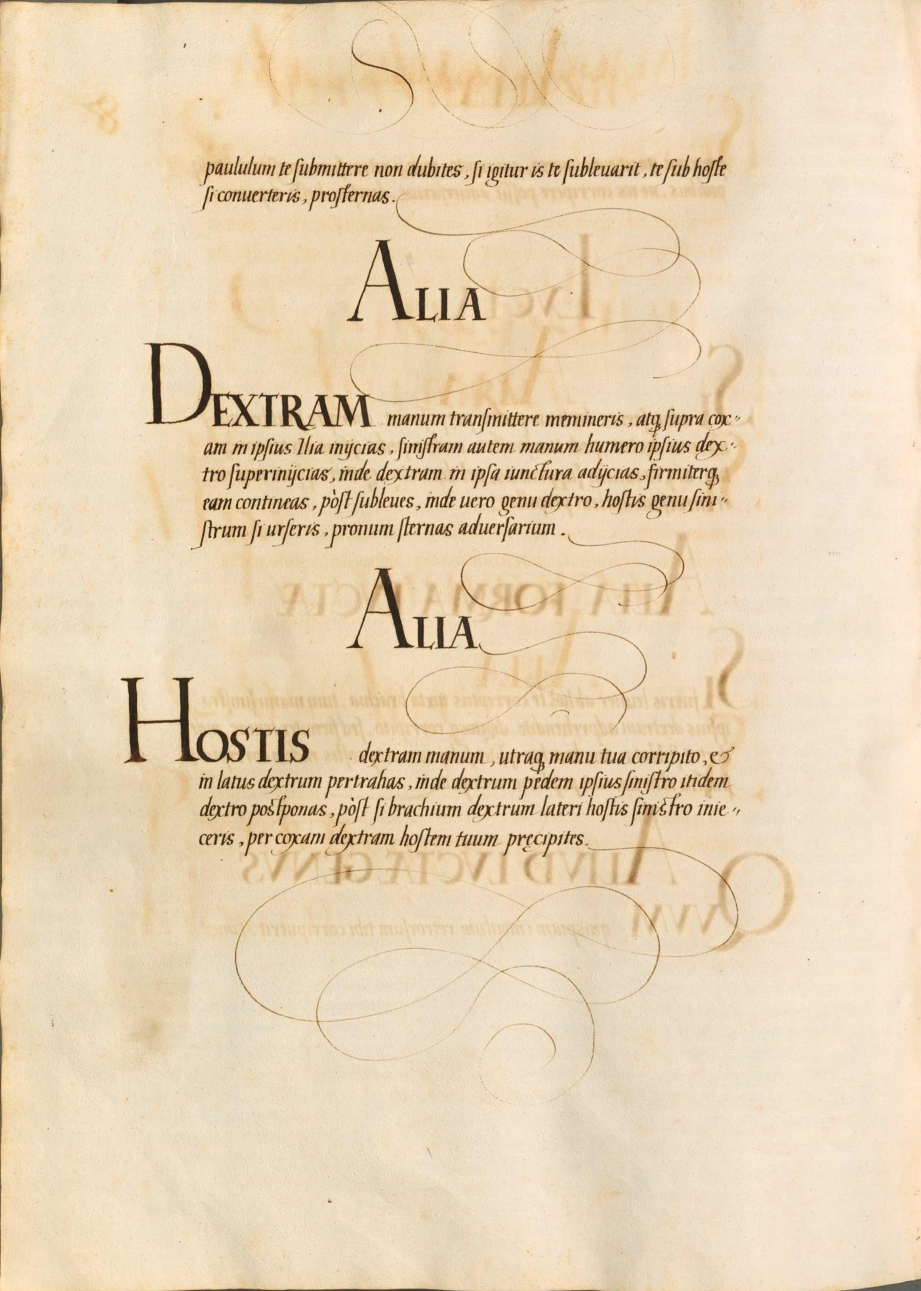 paululum te submittere non dubites, si igitur is te subleuarit, te sub hoste
si conuerteris, prosternas.
ALIA
DEXTRAM manum transmittere memineris, atq; supra cox-
am in ipsius Ilia inijcias, sinistram autem manum humero ipsius dex-
tro superinijcias, inde dextram in ipsa iunctura adijcias, firmiterq;
eam contineas, pòst subleues, inde uero genu dextro, hostis genu sini-
strum si urseris, pronum sternas aduersarium.
ALIA
HOSTIS dextram manum, utraq; manu tua corripito, &
in latus dextrum pertrahas, inde dextrum pedem ipsius sinistro itidem
dextro postponas, pòst si brachium dextrum lateri hostis sinistro inie-
ceris, per coxam dextram hostem tuum pręcipites.